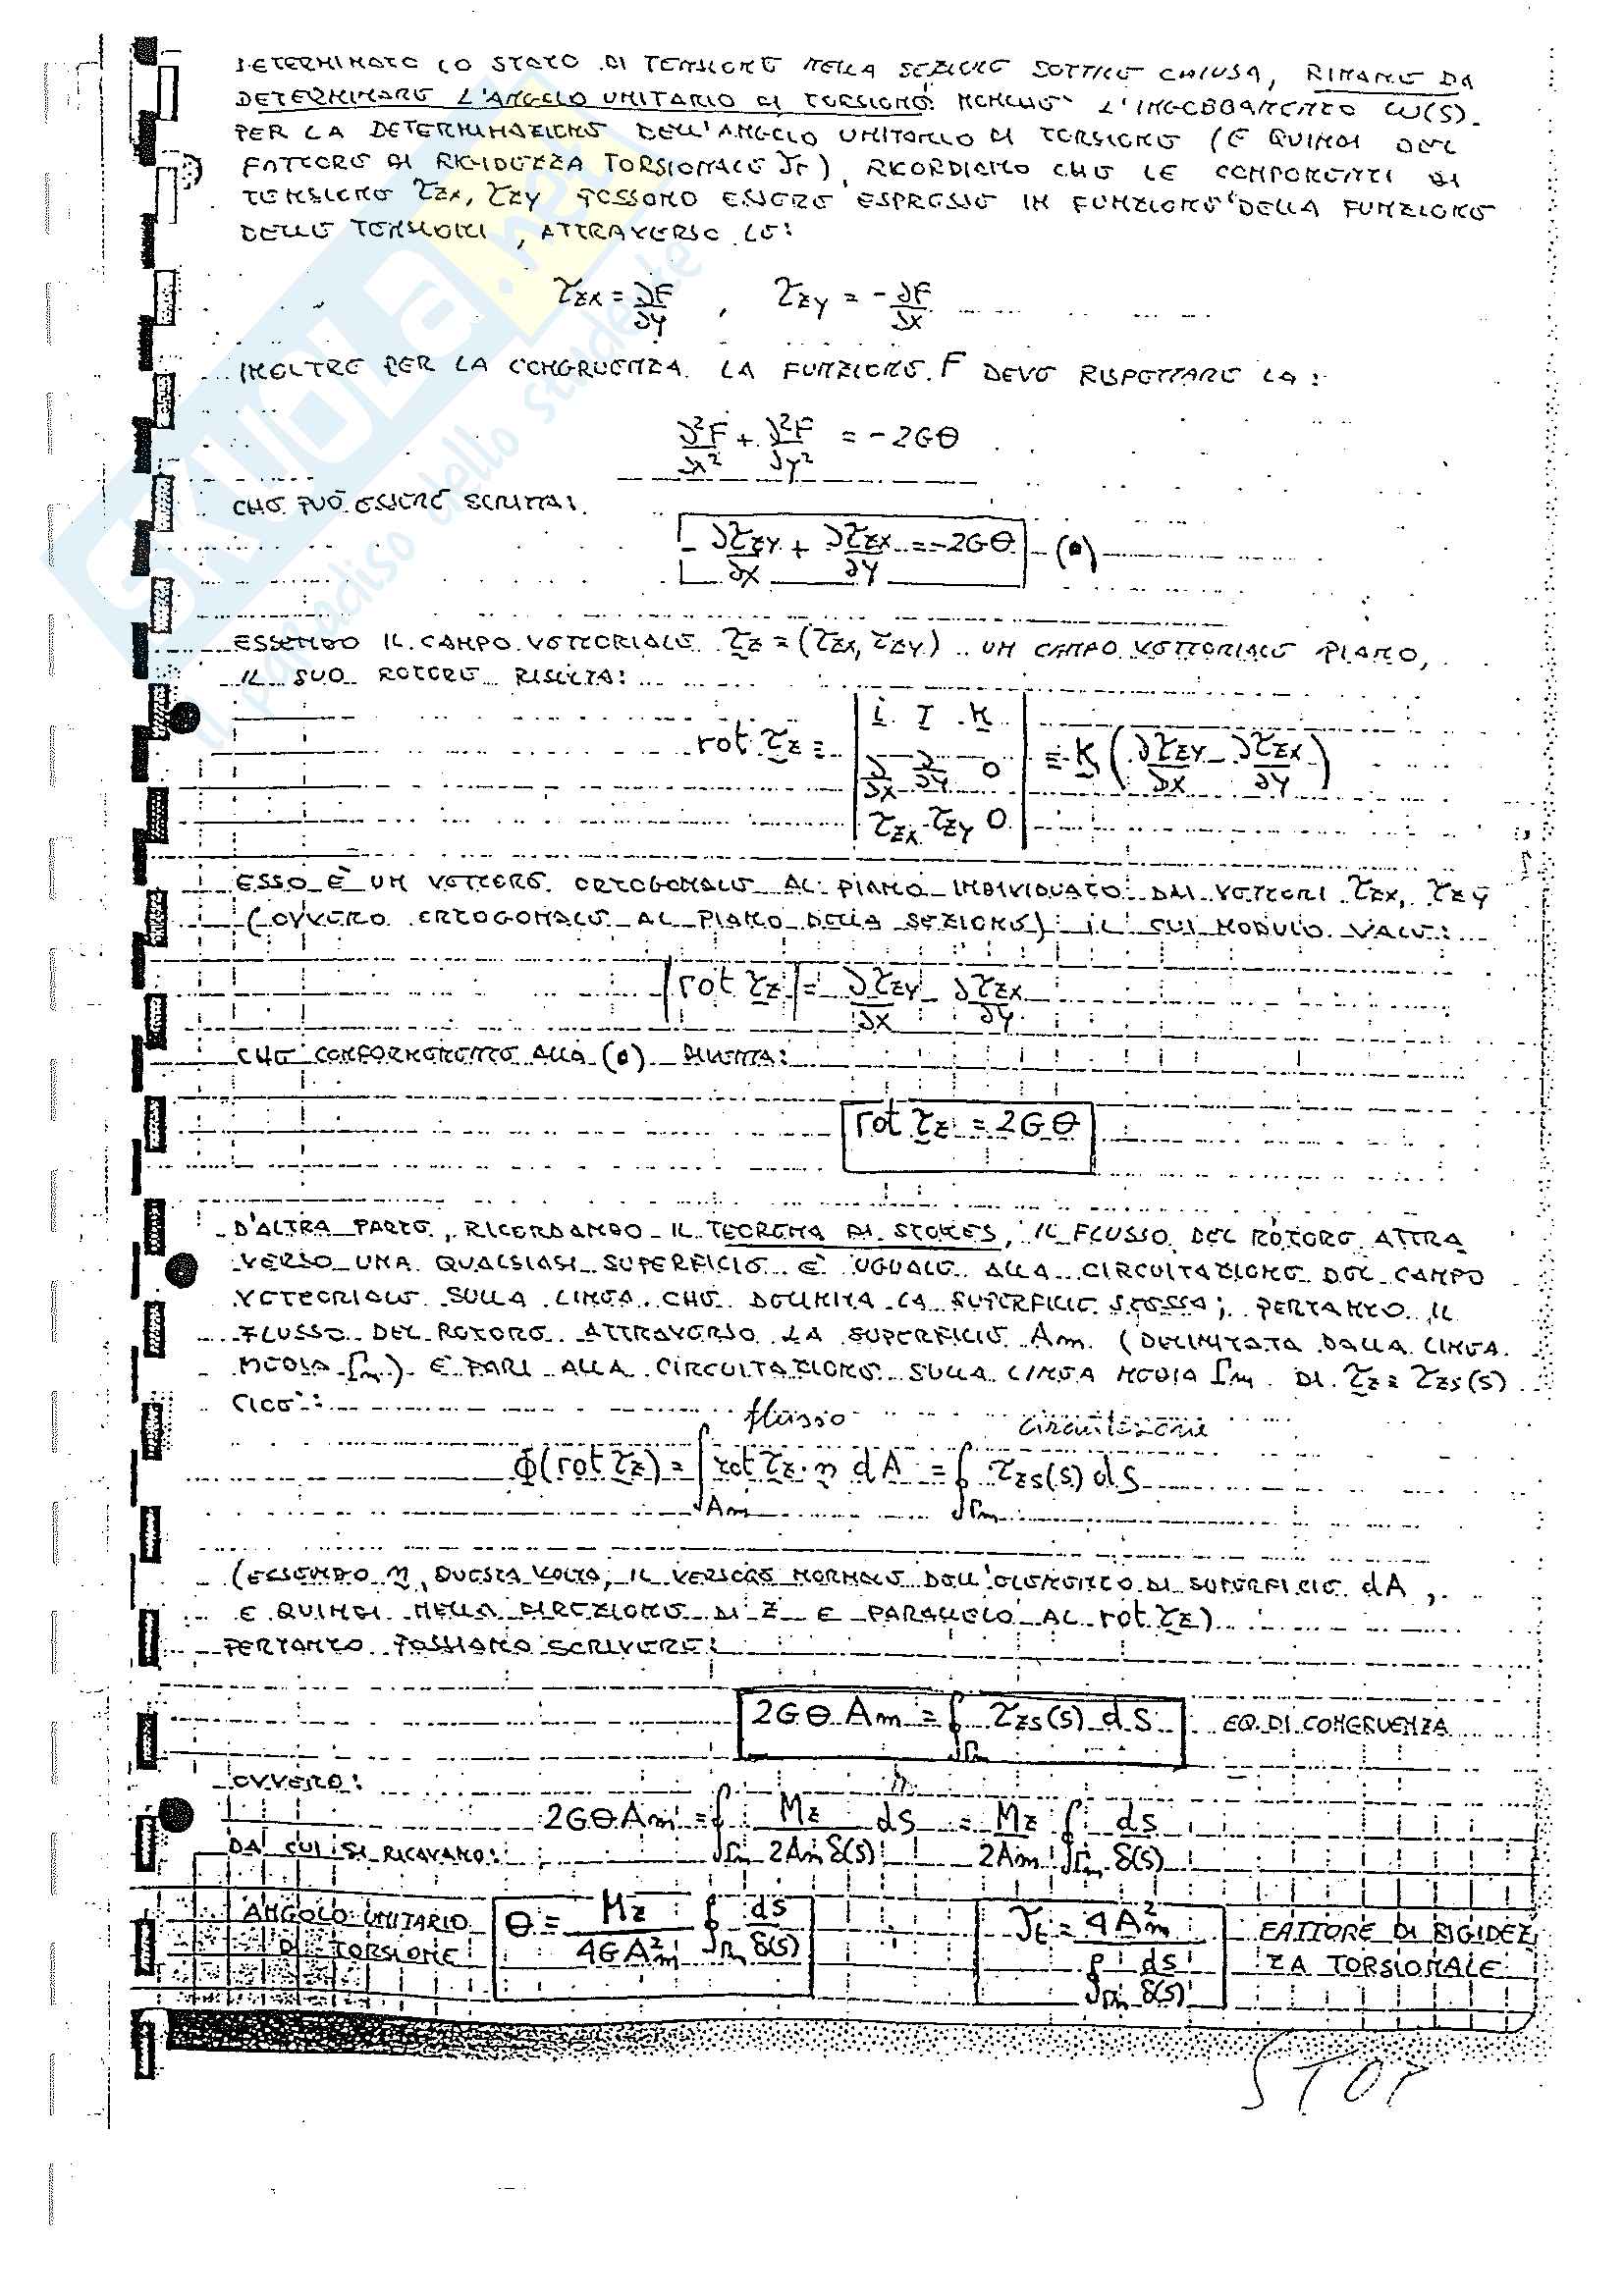 DETERMINATO LO STATO DI TENSIONE NELLA SEZIONE SOTTILE CHIUSA, RIMANE DA
DETERMINARE L'ANGOLO UNITARIO DI TORSIONE NONCHE' L'INGOBBAMENTO W(S).
PER LA DETERMINAZIONE DELL'ANGOLO UNITARIO DI TORSIONE (E QUINDI DEL
FATTORE DI RIGIDEZZA TORSIONALE Jt), RICORDIAMO CHE LE COMPONENTI DI
TENSIONE τzx, τzy POSSONO ESSERE ESPRESSE IN FUNZIONE DELLA FUNZIONE
DELLE TENSIONI, ATTRAVERSO LE:
τzx = ∂F/∂y , τzy = -∂F/∂x
INOLTRE PER LA CONGRUENZA LA FUNZIONE F DEVE RISPETTARE LA:
∂²F/∂x² + ∂²F/∂y² = -2Gθ
CHE PUÒ ESSERE SCRITTA:
-∂τzy/∂x + ∂τzx/∂y = -2Gθ (•)
ESSENDO IL CAMPO VETTORIALE τz = (τzx, τzy) UN CAMPO VETTORIALE PIANO,
IL SUO ROTORE RISULTA:
rot τz = | i J K ; ∂/∂x ∂/∂y 0 ; τzx τzy 0 | = K (∂τzy/∂x - ∂τzx/∂y)
ESSO È UN VETTORE ORTOGONALE AL PIANO INDIVIDUATO DAI VETTORI τzx, τzy
(OVVERO ORTOGONALE AL PIANO DELLA SEZIONE) IL CUI MODULO VALE:
|rot τz| = ∂τzy/∂x - ∂τzx/∂y
CHE CONFORMEMENTE ALLA (•) DIVENTA:
rot τz = 2Gθ
D'ALTRA PARTE, RICORDANDO IL TEOREMA DI STOKES, IL FLUSSO DEL ROTORE ATTRA
VERSO UNA QUALSIASI SUPERFICIE È UGUALE ALLA CIRCUITAZIONE DEL CAMPO
VETTORIALE SULLA LINEA CHE DELIMITA LA SUPERFICIE STESSA; PERTANTO IL
FLUSSO DEL ROTORE ATTRAVERSO LA SUPERFICIE Am (DELIMITATA DALLA LINEA
MEDIA Γm) È PARI ALLA CIRCUITAZIONE SULLA LINEA MEDIA Γm DI τz = τzs(s)
CIOE':
flusso circuitazione
Φ(rot τz) = ∫Am rot τz · n dA = ∮Γm τzs(s) ds
(ESSENDO n, QUESTA VOLTA, IL VERSORE NORMALE DELL'ELEMENTO DI SUPERFICIE dA,
E QUINDI NELLA DIREZIONE DI Z E PARALLELO AL rot τz)
PERTANTO POSSIAMO SCRIVERE:
2Gθ Am = ∮Γm τzs(s) ds EQ. DI CONGRUENZA
OVVERO:
2GθAm = ∮Γm Mz/(2Am δ(s)) ds = Mz/(2Am) ∮Γm ds/δ(s)
DA CUI SI RICAVANO:
ANGOLO UNITARIO DI TORSIONE
θ = Mz/(4GAm²) ∮Γm ds/δ(s)
Jt = 4Am² / ∮Γm ds/δ(s)
FATTORE DI RIGIDEZ
ZA TORSIONALE
STOP
SKUOLA.net
il paradiso dello studente